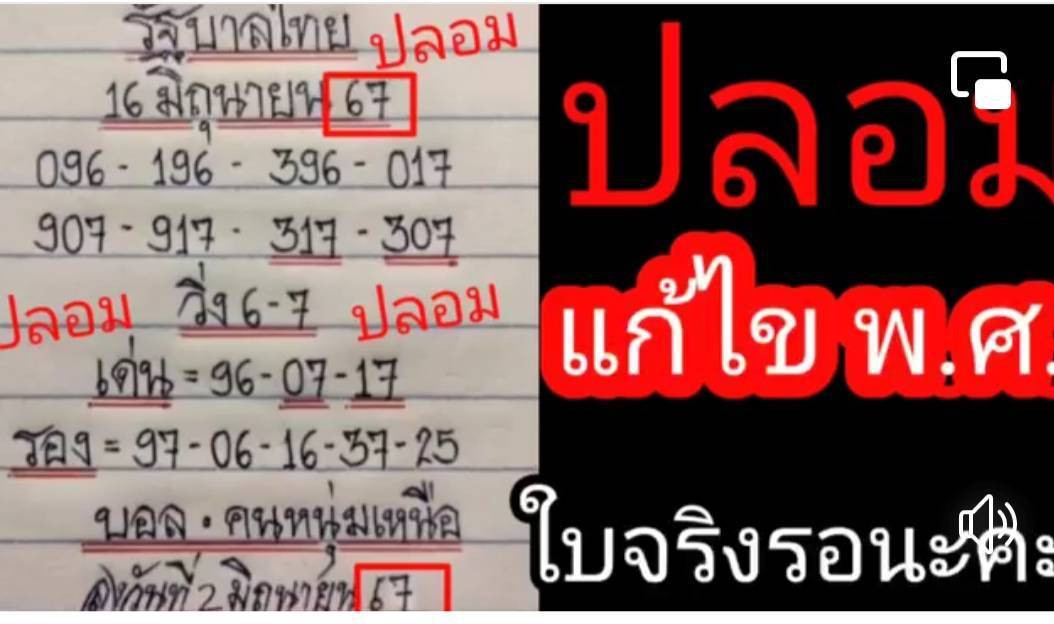 รัฐบาลไทย ปลอม
16 มิถุนายน 67
096 - 196 - 396 - 017
907 - 917 - 317 - 307
ปลอม วิ่ง 6-7 ปลอม
เด่น = 96-07-17
รอง = 97-06-16-37-25
บอล . คนหนุ่มเหนือ
วันที่ 2 มิถุนายน 67
ปลอม
แก้ไข พ.ศ.
ใบจริงรอนะคะ